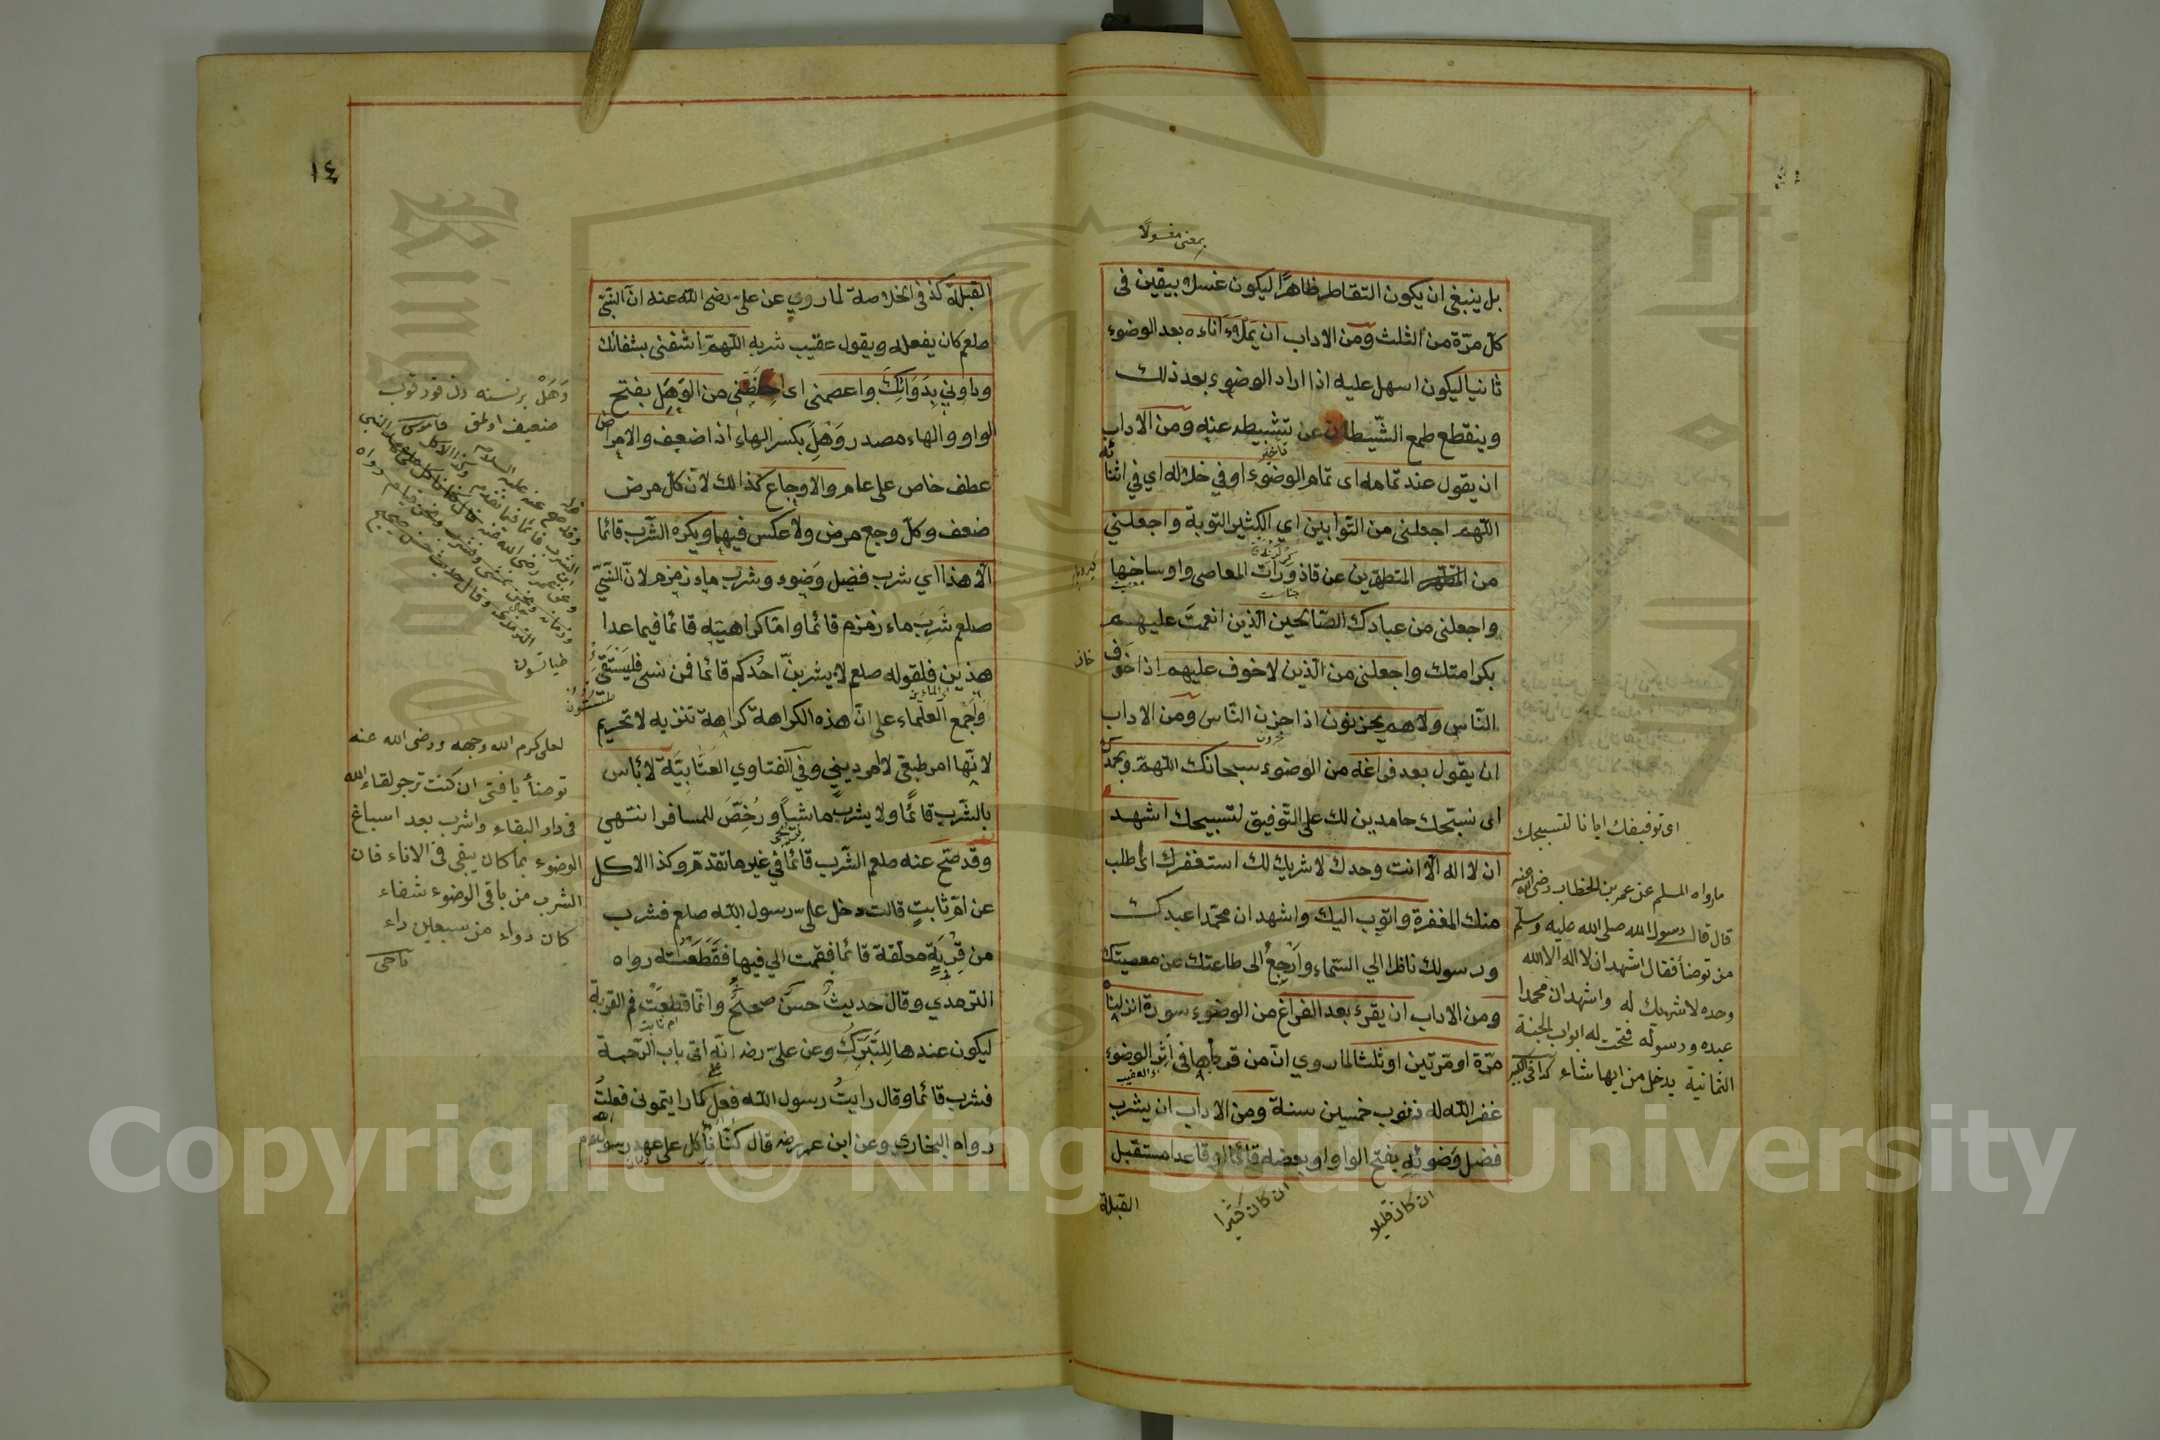 بمعنى مغسولا
بل ينبغى ان يكون التقاطر ظاهرا ليكون غسل بيقين فى
كل مرّة من الثلث ومن الاداب ان يملاء اناءه بعد الوضوء
ثانيا ليكون اسهل عليه اذا اراد الوضوء بعد ذلك
وينقطع طمع الشّيطان عن تثبيطه عنه ومن الاداب
ان يقول عند تمامه اى تمام الوضوء او في خلاله اي في اثنائه
اللّهم اجعلنى من التوابين اي الكثير التوبة واجعلني
من المتطهرين عن قاذورات المعاصى واوساخها
واجعلنى من عبادك الصّالحين الّذين انعمت عليهم
بكرامتك واجعلنى من الّذين لا خوف عليهم اذا خوف
النّاس ولا هم يحزنون اذا حزن النّاس ومن الاداب
ان يقول بعد فراغه من الوضوء سبحانك اللّهم وبحمدك
اى نسبّحك حامدين لك على التّوفيق لتسبيحك اشهد
ان لا اله الّا انت وحدك لا شريك لك استغفرك اى طلب
منك المغفرة واتوب اليك واشهد ان محمّدا عبدك
ورسولك ناظرا الي السّماء وارجع الى طاعتك عن معصيتك
ومن الاداب ان يقرء بعد الفراغ من الوضوء سورة انزلناه
مرّة او مرّتين او ثلثا لما روي انّ من قرأها في اثر الوضوء
غفر اللّه له ذنوب خمسين سنة ومن الاداب ان يشرب
فضل وَضوئه بفتح الواو او بعضه قائما او قاعدا مستقبل
ان كان قليلا
ان كان كثيرا
القبلة
اى توفيقك ايانا لتسبيحك
ما رواه المسلم عن عمر بن الخطاب رضى الله عنه
قال قال رسول الله صلى الله عليه وسلم
من توضأ فقال اشهد ان لا اله الا الله
وحده لا شريك له واشهد ان محمدا
عبده ورسوله فتحت له ابواب الجنة
الثمانية يدخل من ايها شاء كذا فى الكبير
١٤
القبلة كذا فى الخلاصة لما روي عن علىّ رضى اللّه عنه انّ النّبىّ
صلعم كان يفعله ويقول عقيب شربه اللّهمّ اشفنى بشفائك
وداوني بِدَوَائِكَ واعصمنى اى احفظنى من الوَهَل بفتح
الواو والهاء مصدر وَهِلَ بكسر الهاء اذا ضعف والامراض
عطف خاص على عام والاوجاع كذالك لانّ كلّ مرض
ضعف وكلّ وجع مرض ولا عكس فيهما ويكره الشّرب قائما
الّا هذا اي شرب فضل وَضوء وشرب ماء زمزم لانّ النّبيّ
صلعم شَرِبَ ماء زمزم قائما وامّا كراهيته قائما فيما عدا
هذين فلقوله صلعم لا يشربنّ احدكم قائما فمن نسى فليستقئ
واجمع العلماء على انّ هذه الكراهة كراهة تنزيه لا تحريم
لانّها امر طبيّ لا امر ديني وفي الفتاوي العتّابيّة لا بأس
بالشّرب قائمًا ولا يشرب ماشيًا ورُخّصَ للمسافر انتهى
وقد صحّ عنه صلعم الشّرب قائما في غير ما تقدّم وكذا الاكل
عن امّ ثابتٍ قالت دخل علىّ رسول اللّه صلعم فشرب
من قِرْبَةٍ معلّقة قائما فقمت الي فيها فقَطَعْتُه رواه
الترمذي وقال حديثٌ حسنٌ صحيحٌ وانّما قطعَتْ فم القربة
ليكون عندها لِلتّبَرّكِ وعن علىّ رضه انّه اتى باب الرّحبة
فشرب قائما وقال رايتُ رسول اللّه فعل كما رايتمونى فعلتُ
رواه البخاري وعن ابن عمر رضه قال كنّا نأكل على عهد رسول الله
لعلى كرم الله وجهه ورضى الله عنه
توضأ يا فتى ان كنت ترجو لقاء الله
فى دار البقاء واشرب بعد اسباغ
الوضوء بما كان يبقى فى الاناء فان
الشرب من باقى الوضوء شفاء
كان دواء من سبعين داء